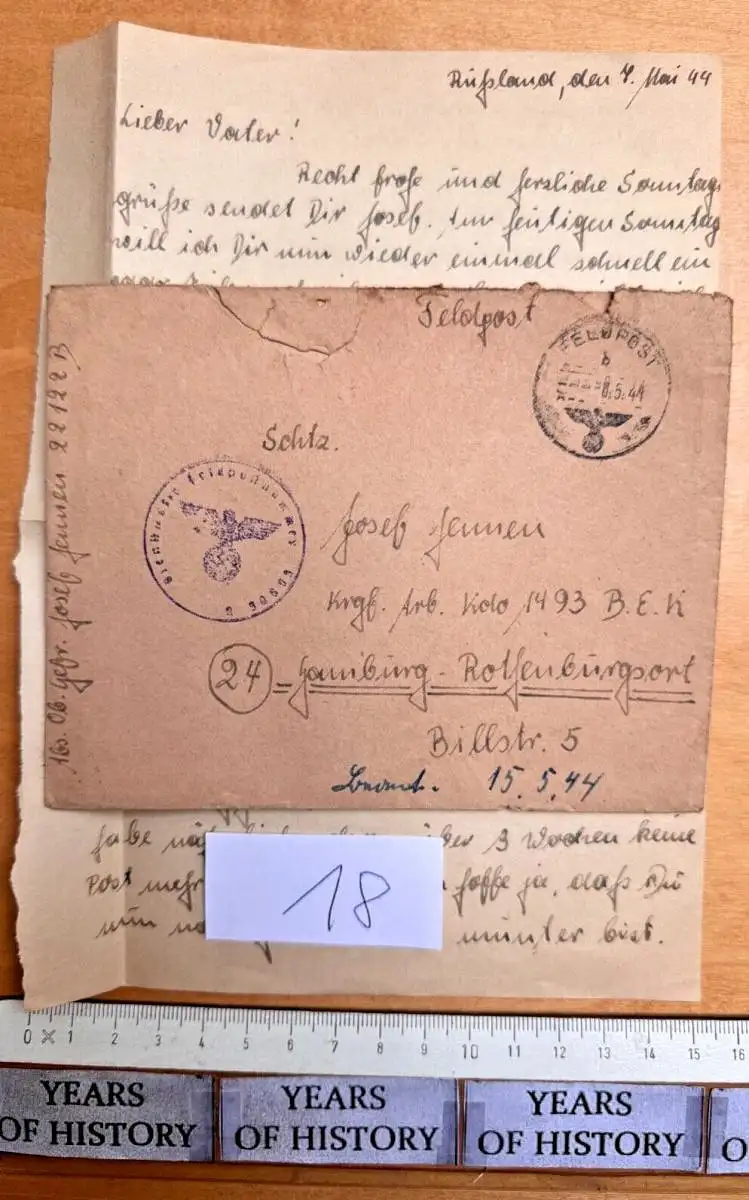 Rußland, den 7. Mai 44
Lieber Vater!
Recht frohe und herzliche Sonntags
grüße sendet Dir Josef. Am heutigen Sonntag
will ich Dir nun wieder einmal schnell ein
Feldpost
FELDPOST
b
8.5.44
Schtz.
Dienststelle Feldpostnummer
Josef Jennen
Krgf. Arb. Kdo 1493 B.E.K
24 - Hamburg - Rothenburgsort
Billstr. 5
Beant. 15.5.44
Abs. Ob. Gefr. Josef Jennen 22122 B
habe 3 Wochen keine
Post mehr hoffe ja, daß Du
nun munter bist.
18
0 1 2 3 4 5 6 7 8 9 10 11 12 13 14 15 16
YEARS OF HISTORY
YEARS OF HISTORY
YEARS OF HISTORY
O